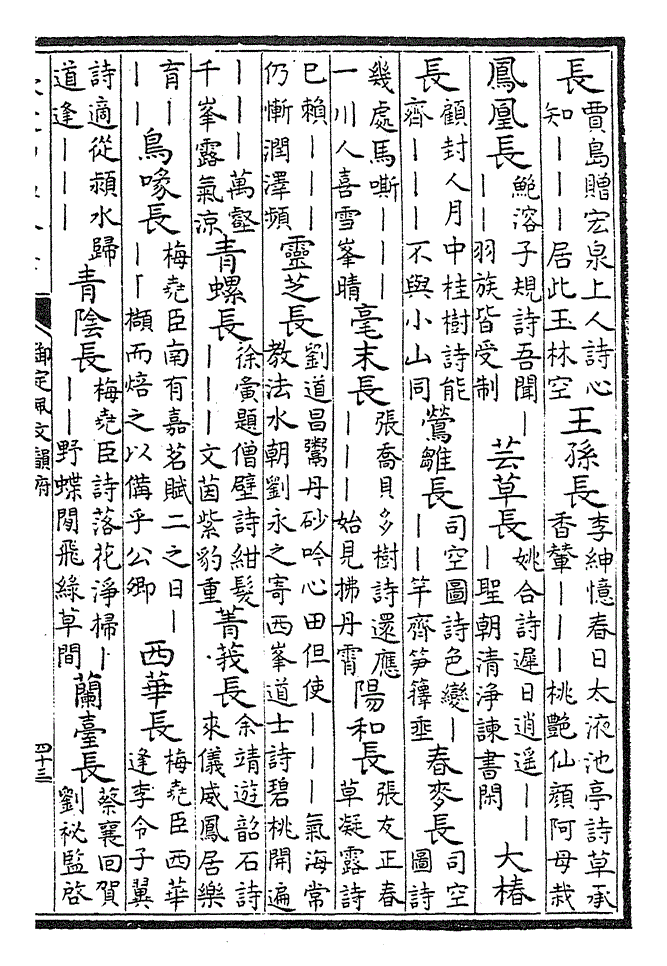 長賈島贈宏泉上人詩心知｜｜｜居此玉林空王孫長李紳憶春日太液池亭詩草承香輦｜｜｜桃艷仙顔阿母栽
鳳凰長鮑溶子規詩吾聞｜｜｜羽族皆受制芸草長姚合詩遲日逍遥｜｜｜聖朝清淨諫書閑大椿
長顧封人月中桂樹詩能齊｜｜｜不與小山同鶯雛長司空圖詩色變｜｜｜竿齊筍籜垂春麥長司空圖詩
幾處馬嘶｜｜｜一川人喜雪峯晴毫末長張喬貝多樹詩還應｜｜｜始見拂丹霄陽和長張友正春草凝露詩
已賴｜｜｜仍慚潤澤頻靈芝長劉道昌鬻丹砂吟心田但使｜｜｜氣海常教法水朝劉永之寄西峯道士詩碧桃開遍
｜｜｜萬壑千峯露氣涼青螺長徐夤題僧壁詩紺髮｜｜｜文茵紫豹重菁莪長余靖遊韶石詩來儀威鳳居樂
育｜｜｜鳥喙長梅堯臣南有嘉茗賦二之日｜｜｜擷而焙之以備乎公卿西華長梅堯臣西華逢李令子翼
詩適從潁水歸道逢｜｜｜青陰長梅堯臣詩落花淨掃｜｜｜野蝶閒飛緑草間蘭臺長蔡襄回賀劉祕監啓
御定佩文韻府
四十三